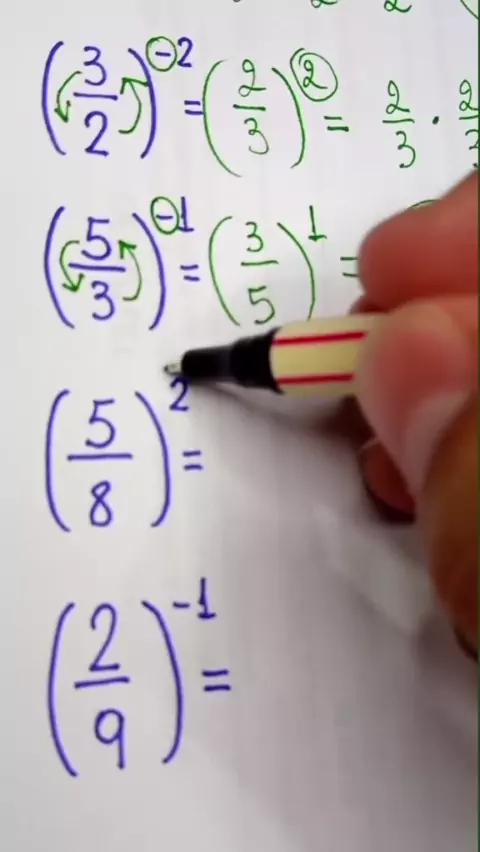 (3/2)^-2 = (2/3)^2 = 2/3 · 2/3
(5/3)^-1 = (3/5)^1 =
(5/8)^2 =
(2/9)^-1 =